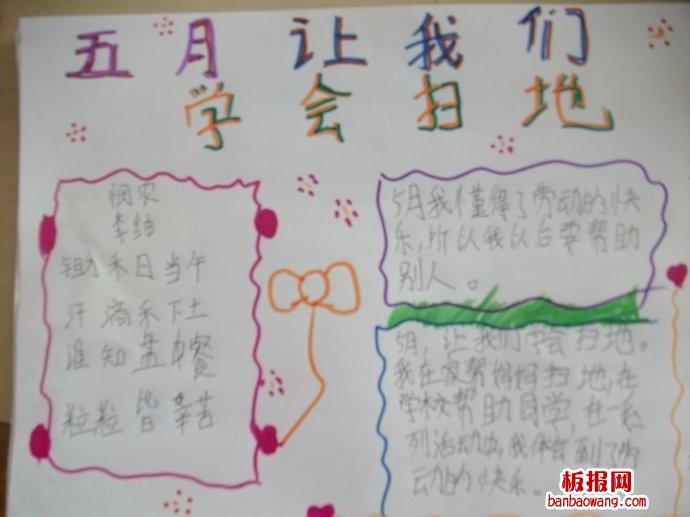 五月让我们
学会扫地
悯农
李绅
锄禾日当午
汗滴禾下土
谁知盘中餐
粒粒皆辛苦
5月我懂得了劳动的快
乐,所以我以后要帮助
别人。
5月,让我们学会扫地。
我在家帮妈妈扫地,在
学校帮助同学,在一系
列活动中,我体会到了劳
动的快乐。
板报网
banbaowang.com